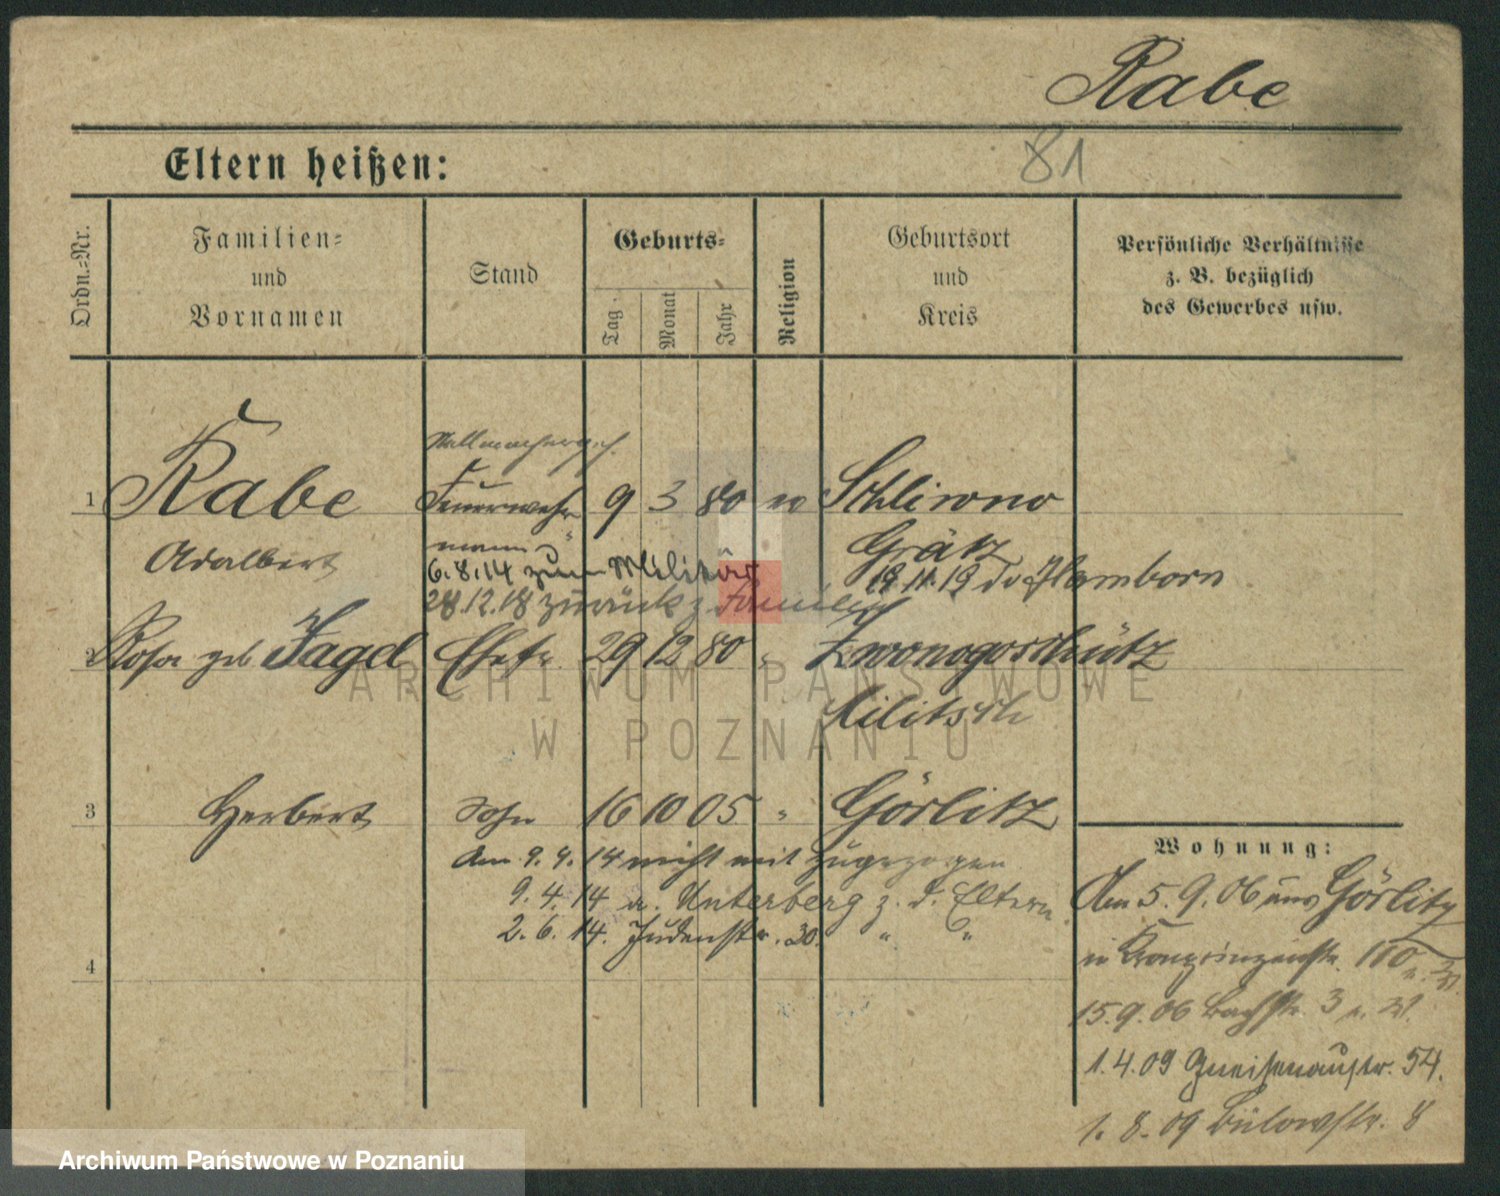 Rabe
81
Eltern heißen:
Ordn.-Nr.
Familien-
und
Vornamen
Stand
Geburts-
Tag.
Monat
Jahr
Religion
Geburtsort
und
Kreis
Persönliche Verhältnisse
z. B. bezüglich
des Gewerbes usw.
1 Rabe Feuerwehr 9 3 80 Schliwno
mann
Adalbert Grätz
6.8.14 zum Militär 19.11.19 Hamborn
28.12.18 zurück z Familie
2 Rosa geb Jagel Ehefr. 29 12 80 "
Militsch
3 Herbert Sohn 16 10 05 " Görlitz
Am 9.4.14 nicht mit zugezogen
9.4.14 a. Unterberg z. d. Eltern
2.6.14. Judenstr. 30. " "
4
Wohnung:
Am 5.9.06 aus Görlitz
n Kronprinzenstr. 110
15.9.06 Bachstr. 3
1.4.09 Gneisenaustr. 54.
1.8.09 Bülowstr. 8
ARCHIWUM PAŃSTWOWE
W POZNANIU
Archiwum Państwowe w Poznaniu